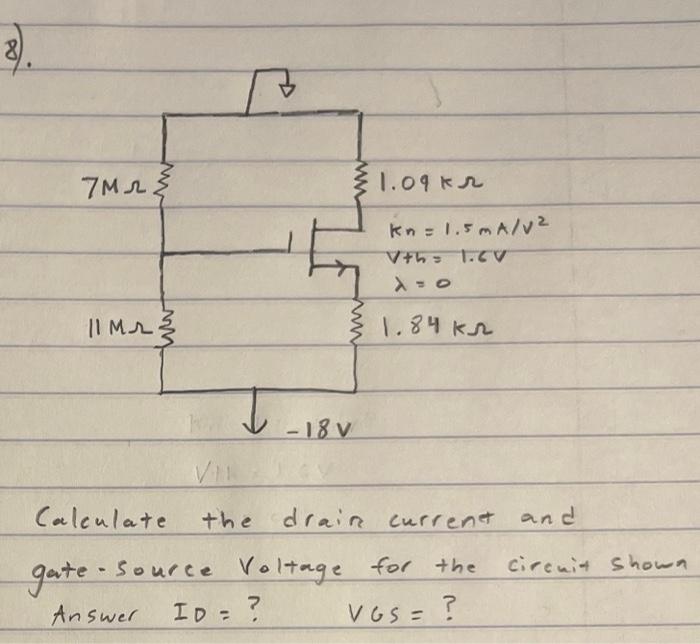 8).
7MΩ
1.09 kΩ
Kn = 1.5 mA/V²
Vth = 1.6V
λ = 0
11 MΩ
1.84 kΩ
-18 V
Calculate the drain current and
gate-source Voltage for the circuit shown
Answer ID = ? VGS = ?